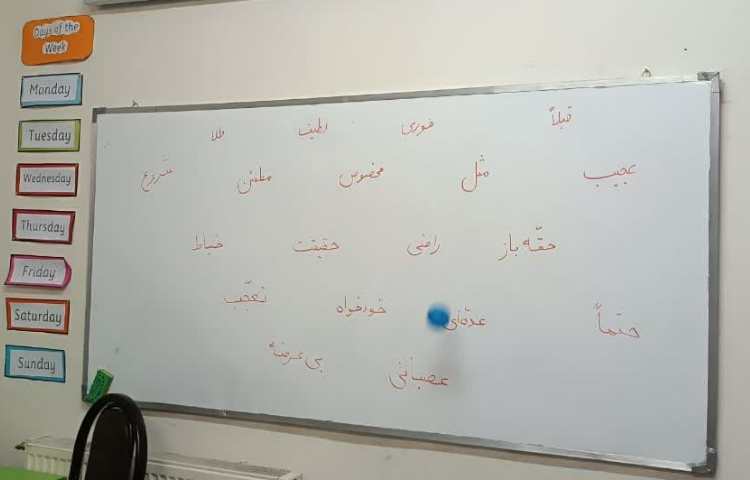 Days of the
Week
Monday
Tuesday
Wednesday
Thursday
Friday
Saturday
Sunday
قبلاً فوری لطیف طلا
عجیب مثل مخصوص مطمئن شروع
حقّه باز راضی حقیقت خیاط
حتماً عدّه‌ای خودخواه تعجّب
عصبانی بی عرضه